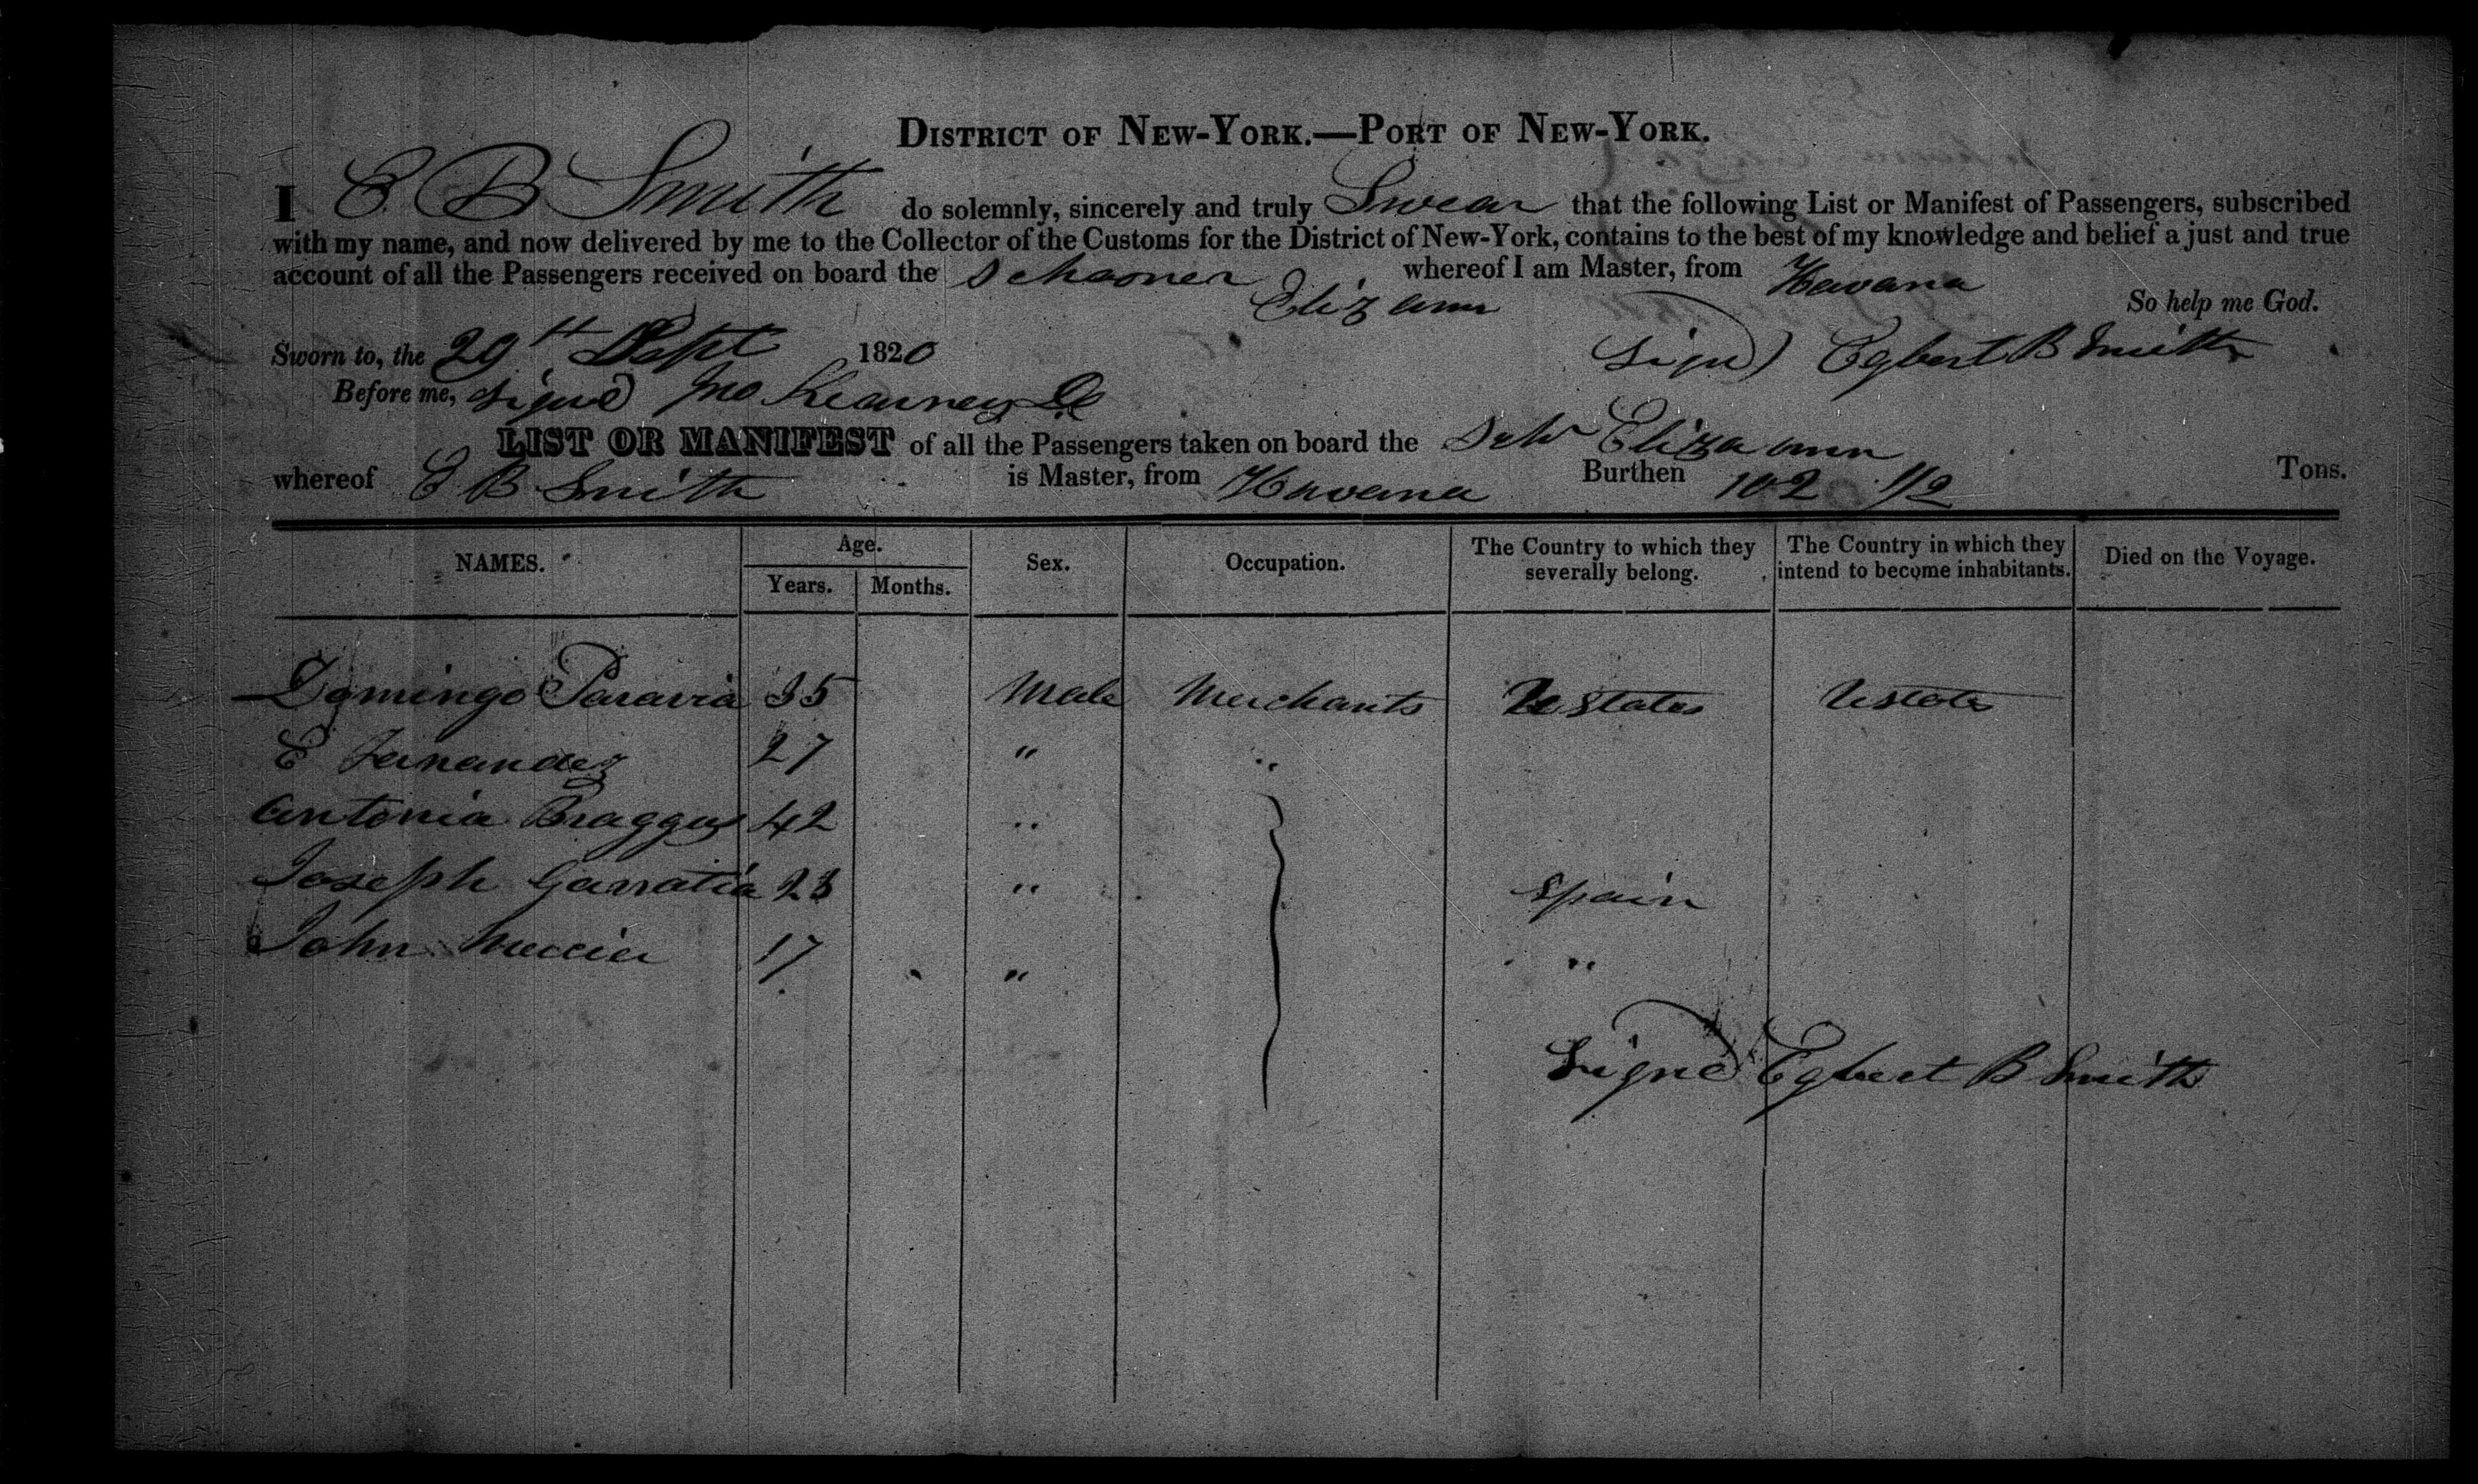 DISTRICT OF NEW-YORK.—PORT OF NEW-YORK.
I E. B Smith do solemnly, sincerely and truly Swear that the following List or Manifest of Passengers, subscribed
with my name, and now delivered by me to the Collector of the Customs for the District of New-York, contains to the best of my knowledge and belief a just and true
account of all the Passengers received on board the Schooner Eliz ann whereof I am Master, from Havana
So help me God.
Sworn to, the 29th Sept 1820 Sign) Egbert B Smith
Before me, signed Jno Kearney
LIST OR MANIFEST of all the Passengers taken on board the Schr Eliza ann
whereof E B Smith is Master, from Havana Burthen 102 1/2 Tons.
NAMES. Age. Years. Months. Sex. Occupation. The Country to which they severally belong. The Country in which they intend to become inhabitants. Died on the Voyage.
Domingo Paravia 35 Male Merchants U States U States
E Fernandez 27 " "
Antonia 42 "
Joseph Garratia 23 " Spain
John 17 " "
Signed Egbert B Smith